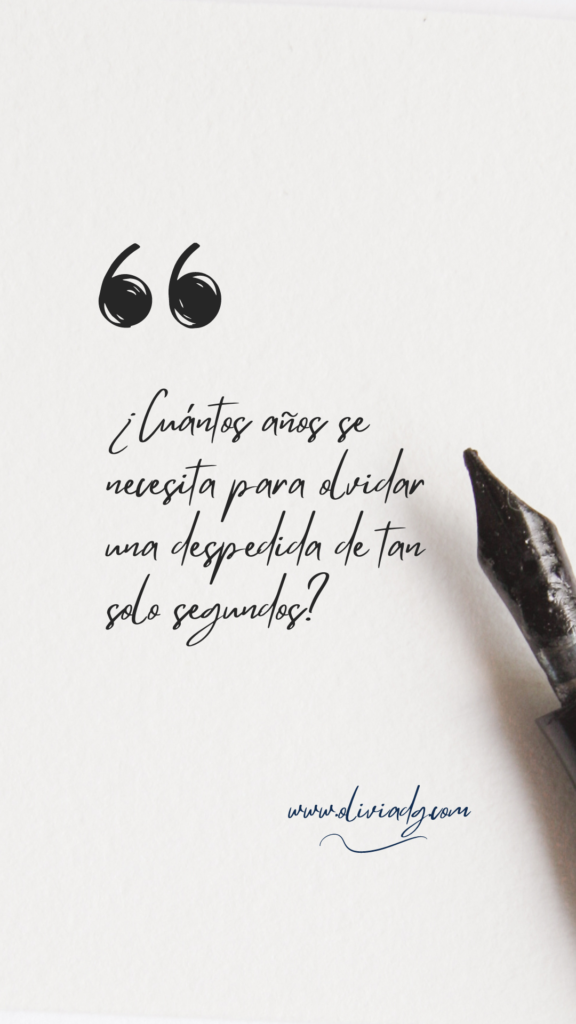 ¿Cuántos años se
necesita para olvidar
una despedida de tan
solo segundos?
www.oliviadg.com